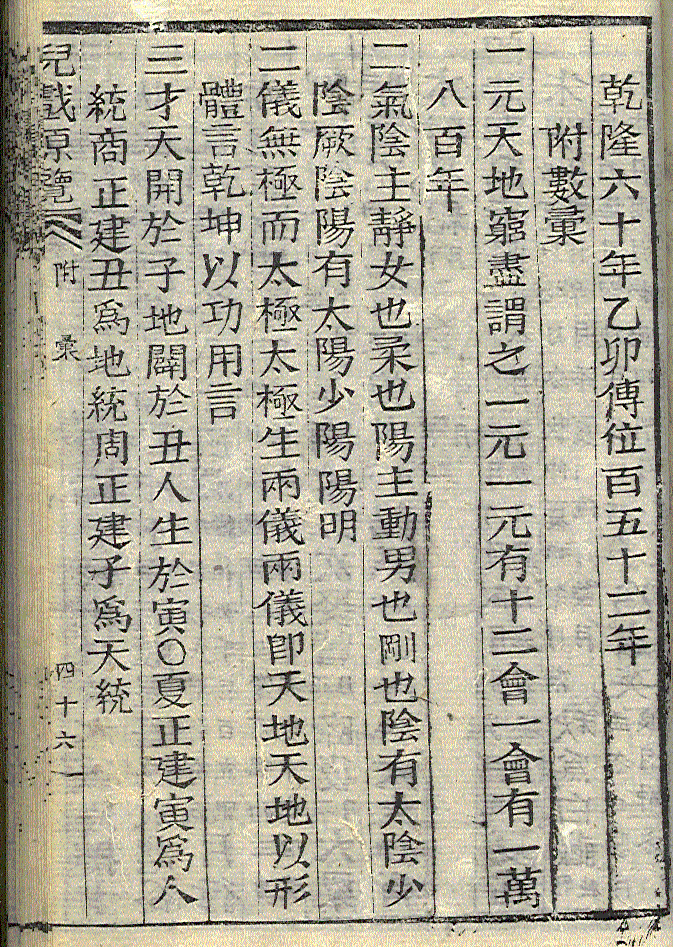 乾隆六十年乙卯傳位百五十二年
附數彙
一元天地窮盡謂之一元一元有十二會一會有一萬
八百年
二氣陰主靜女也柔也陽主動男也剛也陰有太陰少
陰厥陰陽有太陽少陽陽明
二儀無極而太極太極生兩儀兩儀卽天地天地以形
體言乾坤以功用言
三才天開於子地闢於丑人生於寅〇夏正建寅爲人
統商正建丑爲地統周正建子爲天統
兒戲原覽 附彙 四十六